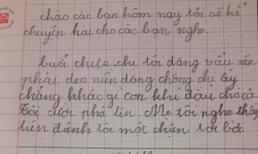 chào các bạn hôm nay tôi sẽ kể
chuyện hài cho các bạn nghe.
buổi chưa chị tôi dáng vẩu nên
phải đeo niên dáng chông chị ấy
chẳng khác gì con khỉ đầu chó cả
Tôi cười phá lên. Mẹ tôi nghe thấy
liền đánh tôi một chận tơi bời